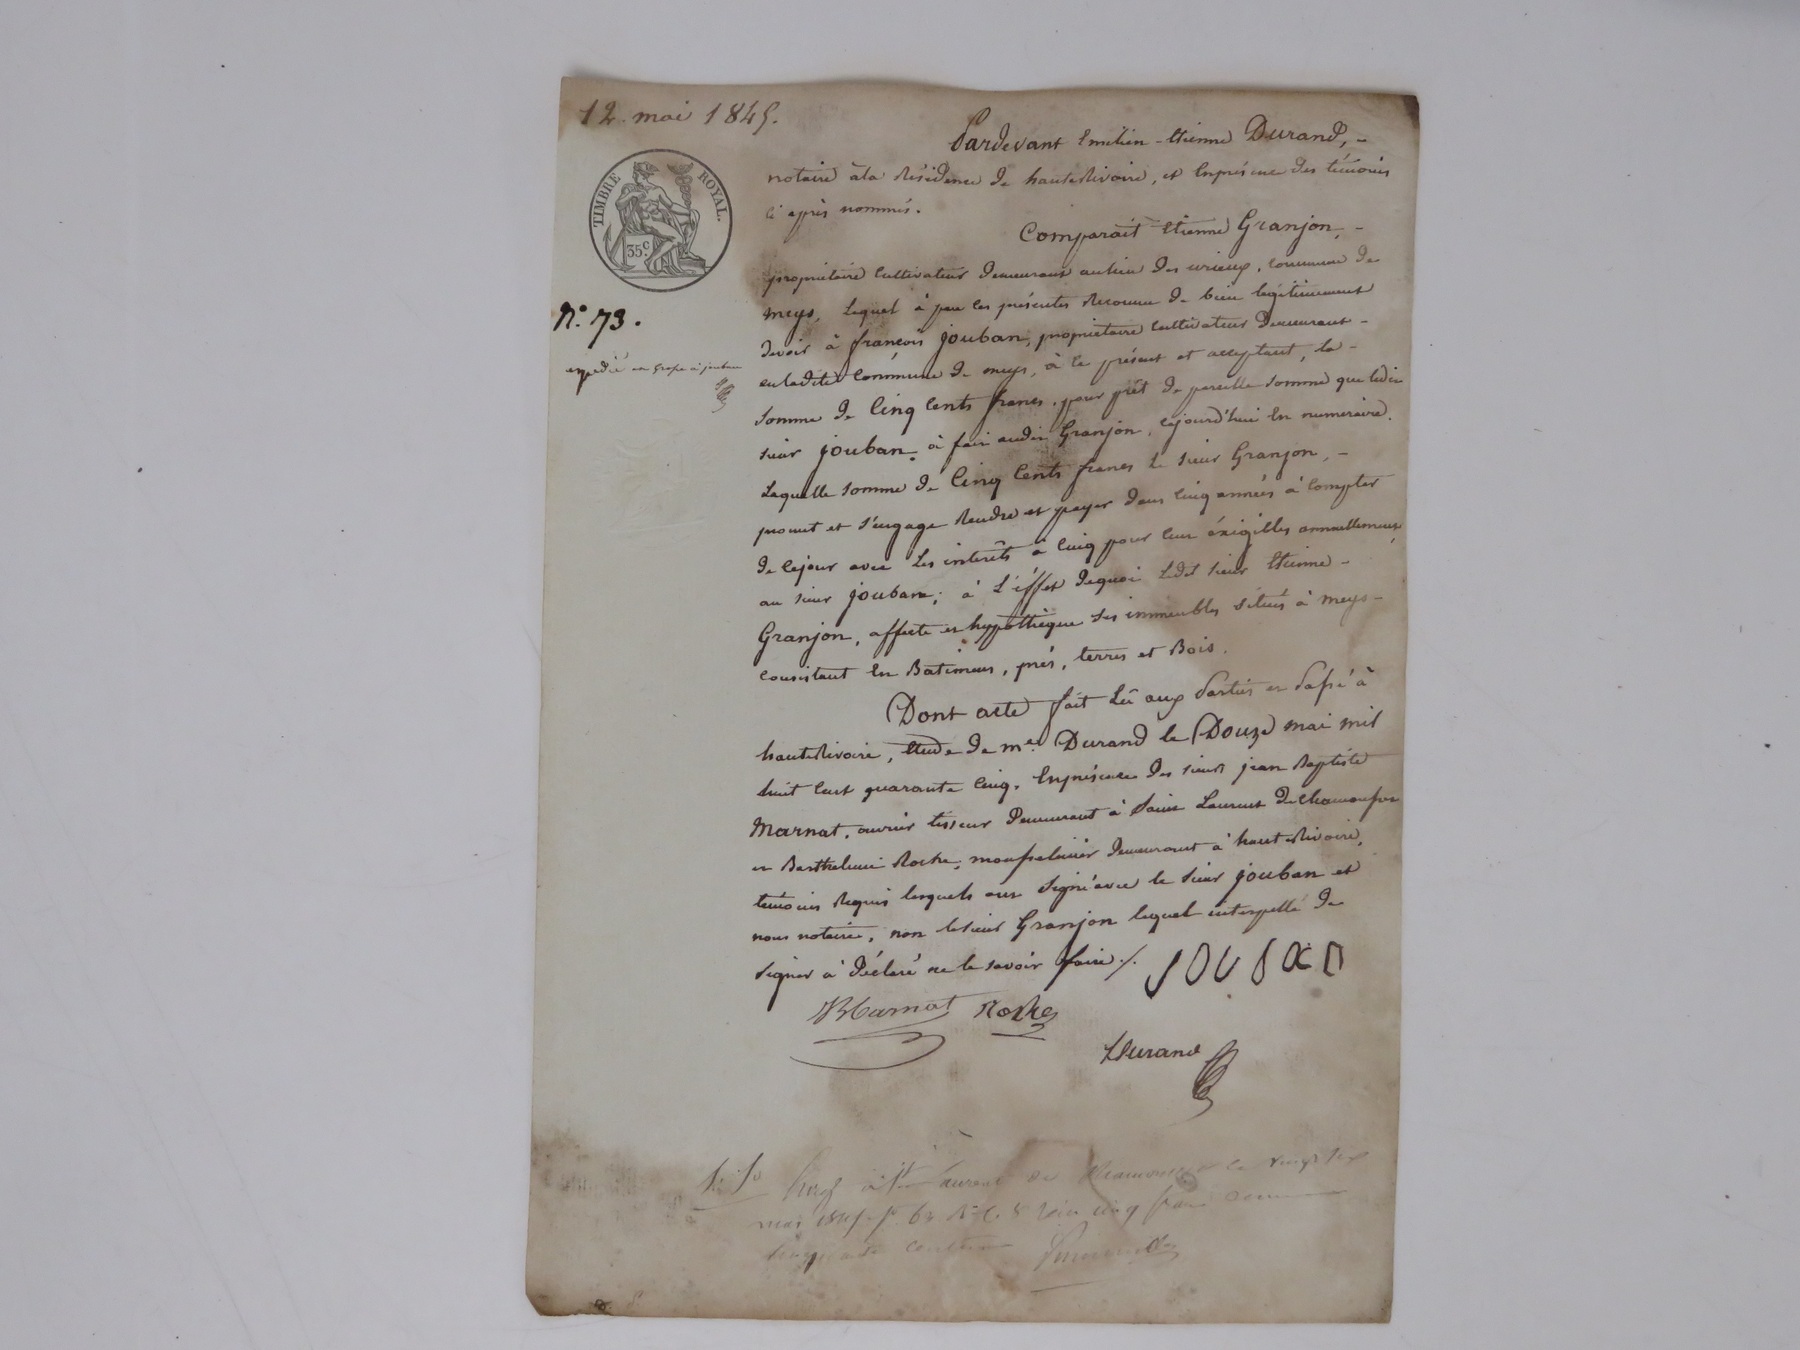 12. mai 1845.
Pardevant Emilien-Etienne Durand, -
notaire àla Résidence de hauteRivoire, et Enprésence des témoins
ci après nommés.
TIMBRE ROYAL.
35.c
Comparait Etienne Granjon, -
propriétaire Cultivateur demeurant aulieu des urieux, Commune de
meys, Lequel à par les présentes Reconnu de bien legitimement
N.° 73.
devoir à françois jouban, propriétaire Cultivateur demeurant -
expedié en grosse à jouban
enladite Commune de meys, à ce présent et acceptant, la -
somme de Cinq Cents francs, pour prêt de pareille somme que ledit
sieur jouban, à fait audit Granjon, cejourd'hui En numeraire.
Laquelle somme de Cinq Cents francs Le sieur Granjon, -
promet et s'engage Rendre et payer dans Cinq années à Compter
de Cejour avec Les interêts à Cinq pour Cent éxigibles annuellement
au sieur jouban; à L'éffet dequoi Ledit sieur Etienne -
Granjon, affecte et hypothèque ses immeubles situés à meys -
Consistant En Batimens, prés, terres et Bois.
Dont acte fait Lû aux Parties et Passé à
hauteRivoire, Etude de me. Durand le Douze mai mil
huit Cent quarante Cinq. Enprésence des sieurs jean Baptiste
Marnat, ouvrier tisseur Demeurant à Saint Laurent de Chamousset
et Barthelemi Roche, demeurant à hauteRivoire,
témoins Requis lesquels ont signé avec le sieur jouban et
nous notaire, non lesieur Granjon lequel interpellé de
signer à déclaré ne le savoir faire ./.
JOUBAN
Marnat Roche
Durand
à St Laurent de Chamousset le vingt
mai 1845. fo 63 Ro C. 5 Reçu cinq francs décime
cinquante centimes